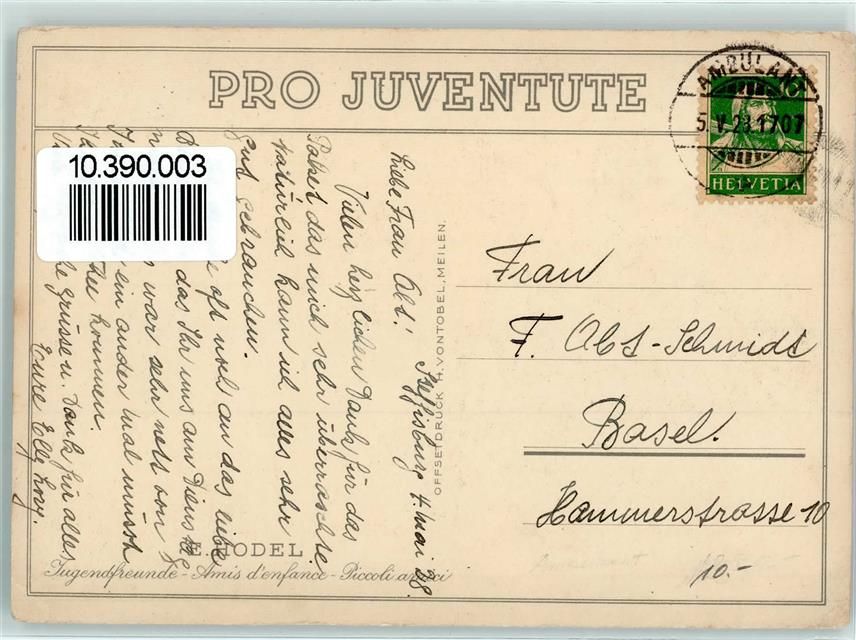 PRO JUVENTUTE
AMBULANT
5. V. 28.1707
10
HELVETIA
10.390.003
Steffisburg 4. Mai 28.
Liebe Frau Abt!
Vielen herzlichen Dank für das
Paket das mich sehr überraschte.
natürlich kann ich alles sehr
gut gebrauchen.
oft noch an das liebe
das Ihr uns am Dienstag
war sehr nett von
ein ander mal müsst
kommen.
Grüsse u. Dank für alles
Eure Elly
OFFSETDRUCK H. VONTOBEL, MEILEN.
Frau
F. Abt-Schmidt
Basel.
Hammerstrasse 10
10.-
E. HODEL
Jugendfreunde - Amis d'enfance - Piccoli amici